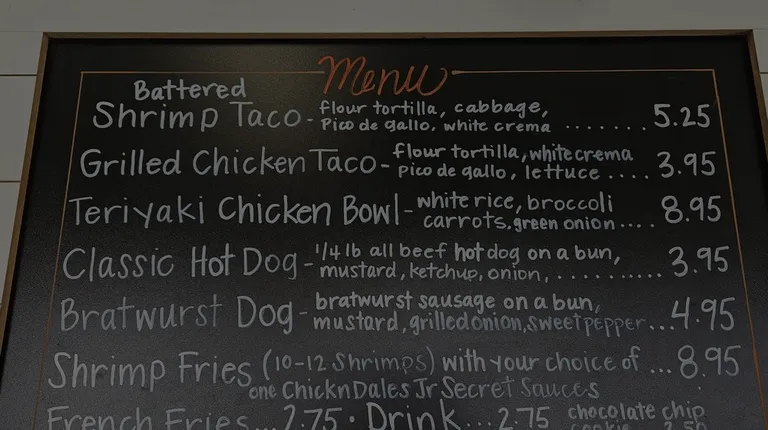 Menu
Battered
Shrimp Taco - flour tortilla, cabbage,
Pico de gallo, white crema ....... 5.25
Grilled Chicken Taco - flour tortilla, white crema
Pico de gallo, lettuce .... 3.95
Teriyaki Chicken Bowl - white rice, broccoli
carrots, green onion ... 8.95
Classic Hot Dog - 1/4 lb all beef hot dog on a bun,
mustard, ketchup, onion, .......... 3.95
Bratwurst Dog - bratwurst sausage on a bun,
mustard, grilled onion, sweet pepper ... 4.95
Shrimp Fries (10-12 Shrimps) with your choice of ... 8.95
one Chickn Dales Jr Secret Sauces
French Fries ... 2.75 • Drink ... 2.75 chocolate chip
cookie 2.50